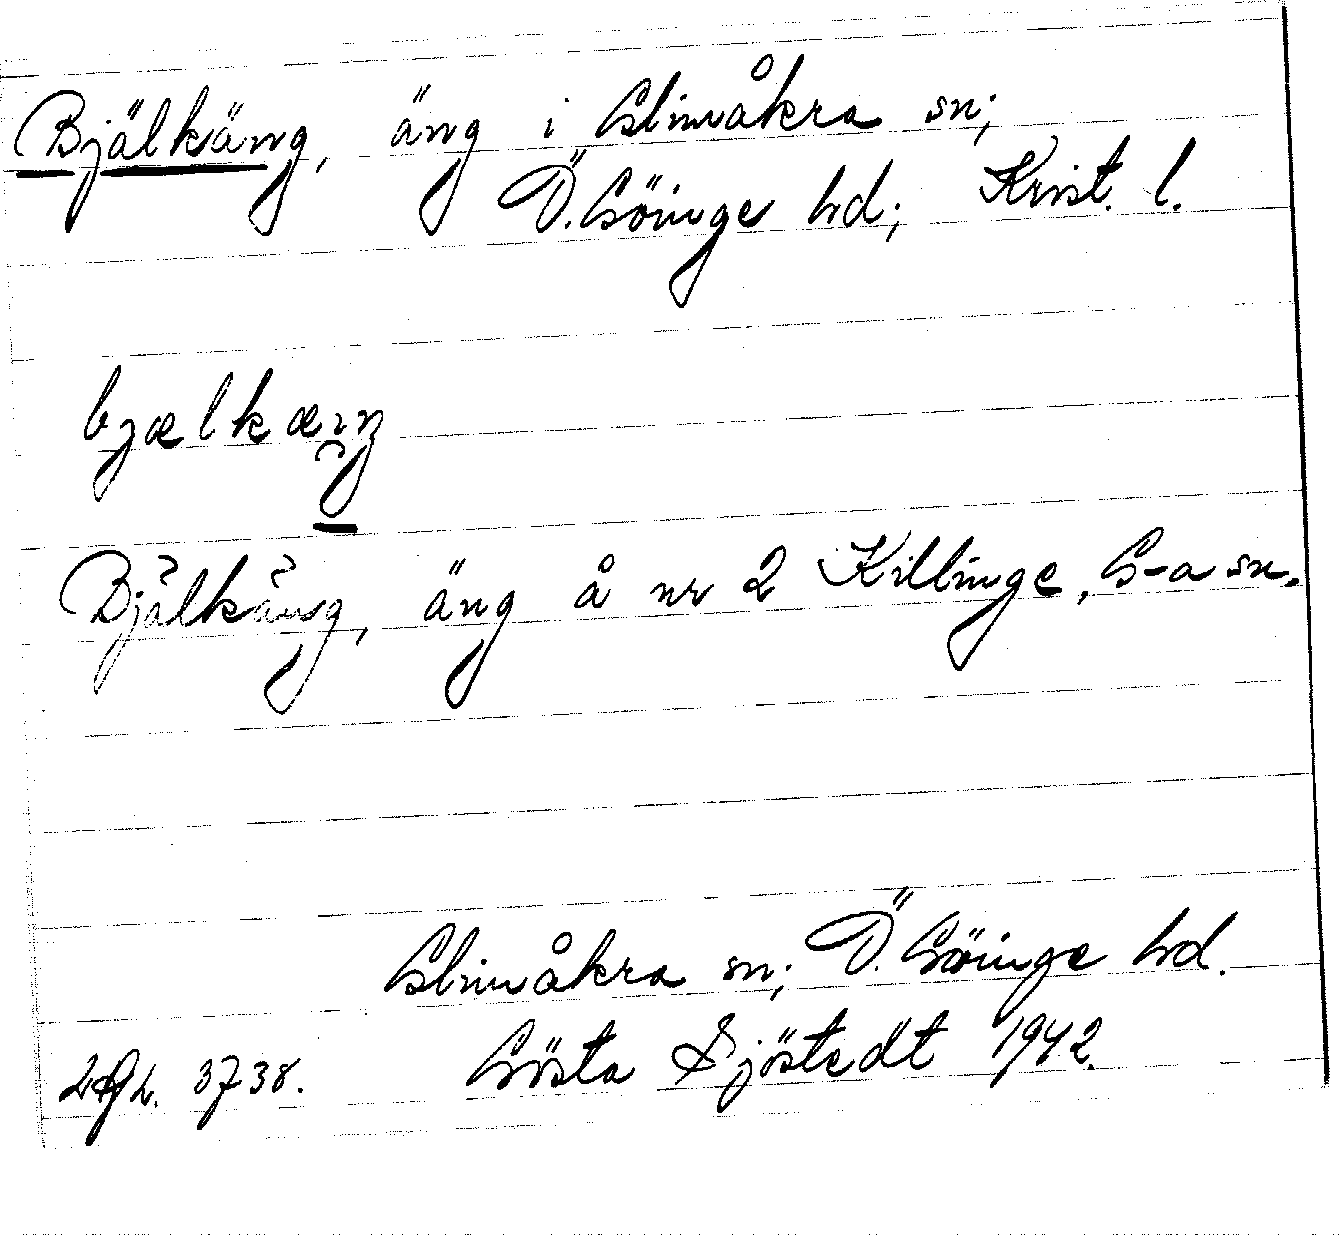 Bjälkäng, äng i Glimåkra sn;
Ö. Göinge hd; Krist. l.
bjælkæŋ
Bjälkäng, äng å nr 2 Killinge, G-a sn.
Glimåkra sn; Ö. Göinge hd.
3738. Gösta Sjöstedt 1942.